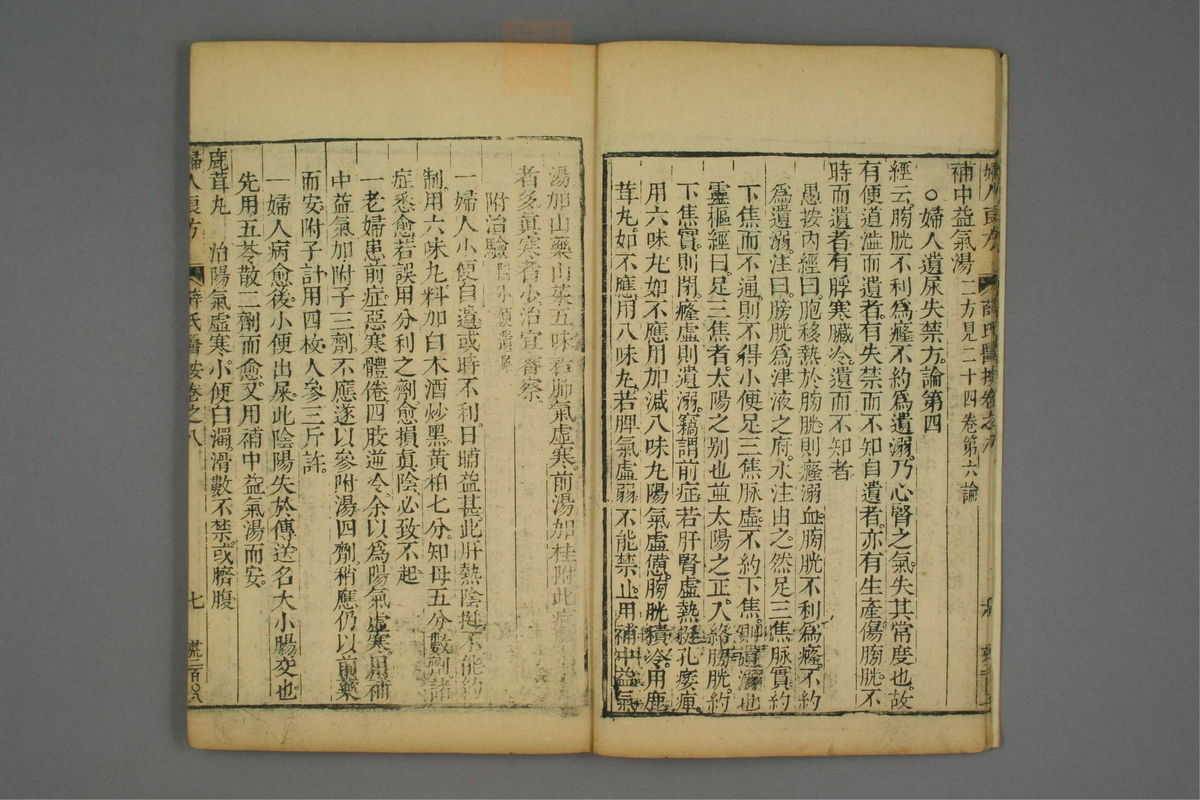 補中益氣湯二方見二十四卷第六論
○婦人遺尿失禁方論第四
經云膀胱不利為癃不約為遺溺乃心腎之氣失其常度也故
有便道澁而遺者有失禁而不知自遺者亦有生產傷膀胱不
時而遺者有脬寒臟冷遺而不知者
愚按內經曰胞移熱於膀胱則癃溺血膀胱不利為癃不約
為遺溺注曰膀胱為津液之府水注由之然足三焦脉實約
下焦而不通則不得小便足三焦脉虛不約下焦則遺溺也
靈樞經曰足三焦者太陽之别也並太陽之正入絡膀胱約
下焦實則閉癃虛則遺溺竊謂前症若肝腎虛熱挺孔痿痺
用六味丸如不應用加減八味丸陽氣虛憊膀胱積冷用鹿
茸丸如不應用八味丸若脾氣虛弱不能禁止用補中益氣
湯加山藥山茱五味若肺氣虛寒前湯加桂附此症
者多眞寒者少治宜審察
附治驗 小便遺
一婦人小便自遺或時不利日晡益甚此肝熱陰挺不能約
制用六味丸料加白木酒炒黑黃柏七分知母五分數劑諸
症悉愈若誤用分利之劑愈損眞陰必致不起
一老婦患前症惡寒體倦四肢逆冷余以為陽氣虛寒用補
中益氣加附子三劑不應遂以參附湯四劑稍應仍以前藥
而安附子計用四枚人參三斤許
一婦人病愈後小便出屎此陰陽失於傳送名大小腸交也
先用五苓散二劑而愈又用補中益氣湯而安
鹿茸丸 治陽氣虛寒小便白濁滑數不禁或臍腹
婦人良方 薛氏醫按卷之八 七